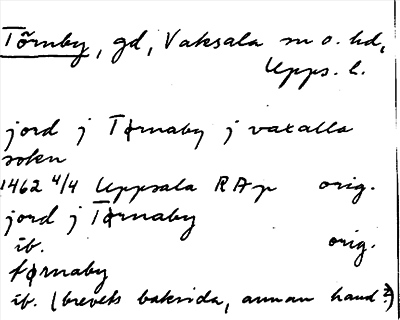 Törnby, gd, Vaksala sn o. hd,
Upps. l.
jord j Tørnaby j vaxalla
soken
1462 4/4 Uppsala RAp orig.
jord j Tørnaby
ib. orig.
tørnaby
ib. (brevets baksida, annan hand?)